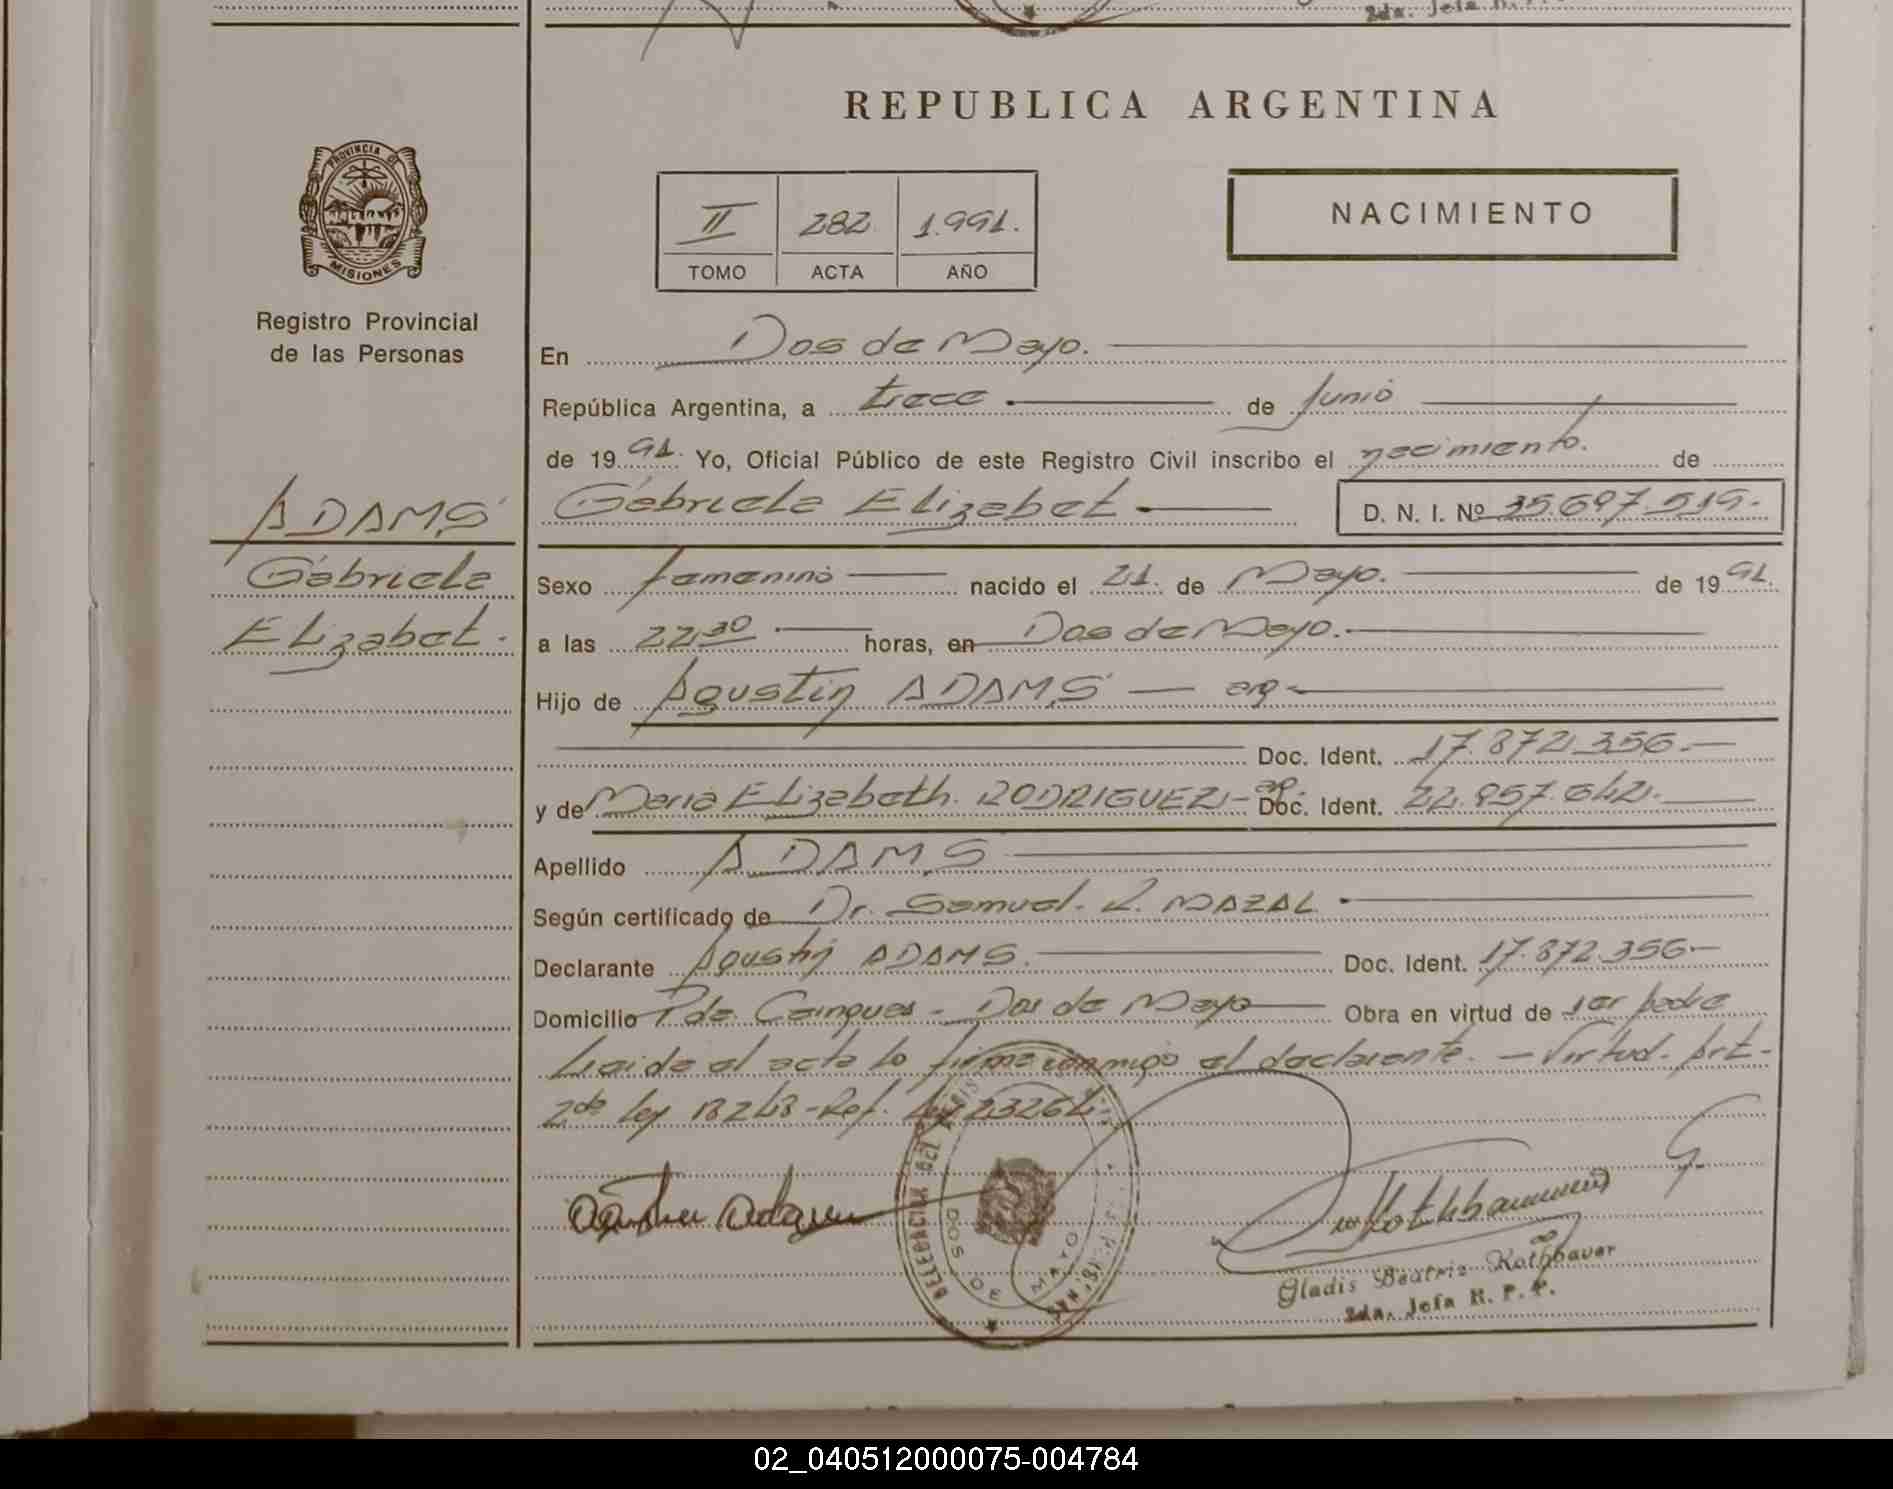 2da. Jefa R. P.
REPUBLICA ARGENTINA
PROVINCIA DE
MISIONES
Registro Provincial
de las Personas
II 282 1.991.
TOMO ACTA AÑO
NACIMIENTO
En Dos de Mayo.
República Argentina, a trece de Junio
de 1991. Yo, Oficial Público de este Registro Civil inscribo el nacimiento. de
ADAMS
Gabriela
Elizabet.
Gabriela Elizabet D. N. I. Nº 35.697.519.
Sexo femenino nacido el 21. de Mayo. de 1991.
a las 22,30 horas, en Dos de Mayo.
Hijo de Agustin ADAMS - arg-
Doc. Ident. 17.872.356.
y de Maria Elizabeth. RODRIGUEZ - ar. Doc. Ident. 22.957.642.
Apellido ADAMS
Según certificado de Dr. Samuel. L. MAZAL.
Declarante Agustin ADAMS. Doc. Ident. 17.872.356-
Domicilio Pda. Cainguas - Dos de Mayo Obra en virtud de ser padre
Leida el acta la firma conmigo el declarante. - Virtud. Art-
2do ley 18248-Ref. Ley 23264-
DELEGACION DEL
DOS DE MAYO
MISIONES
Gladis Beatriz Rothbauer
2da. Jefa R. P. P.
02_040512000075-004784